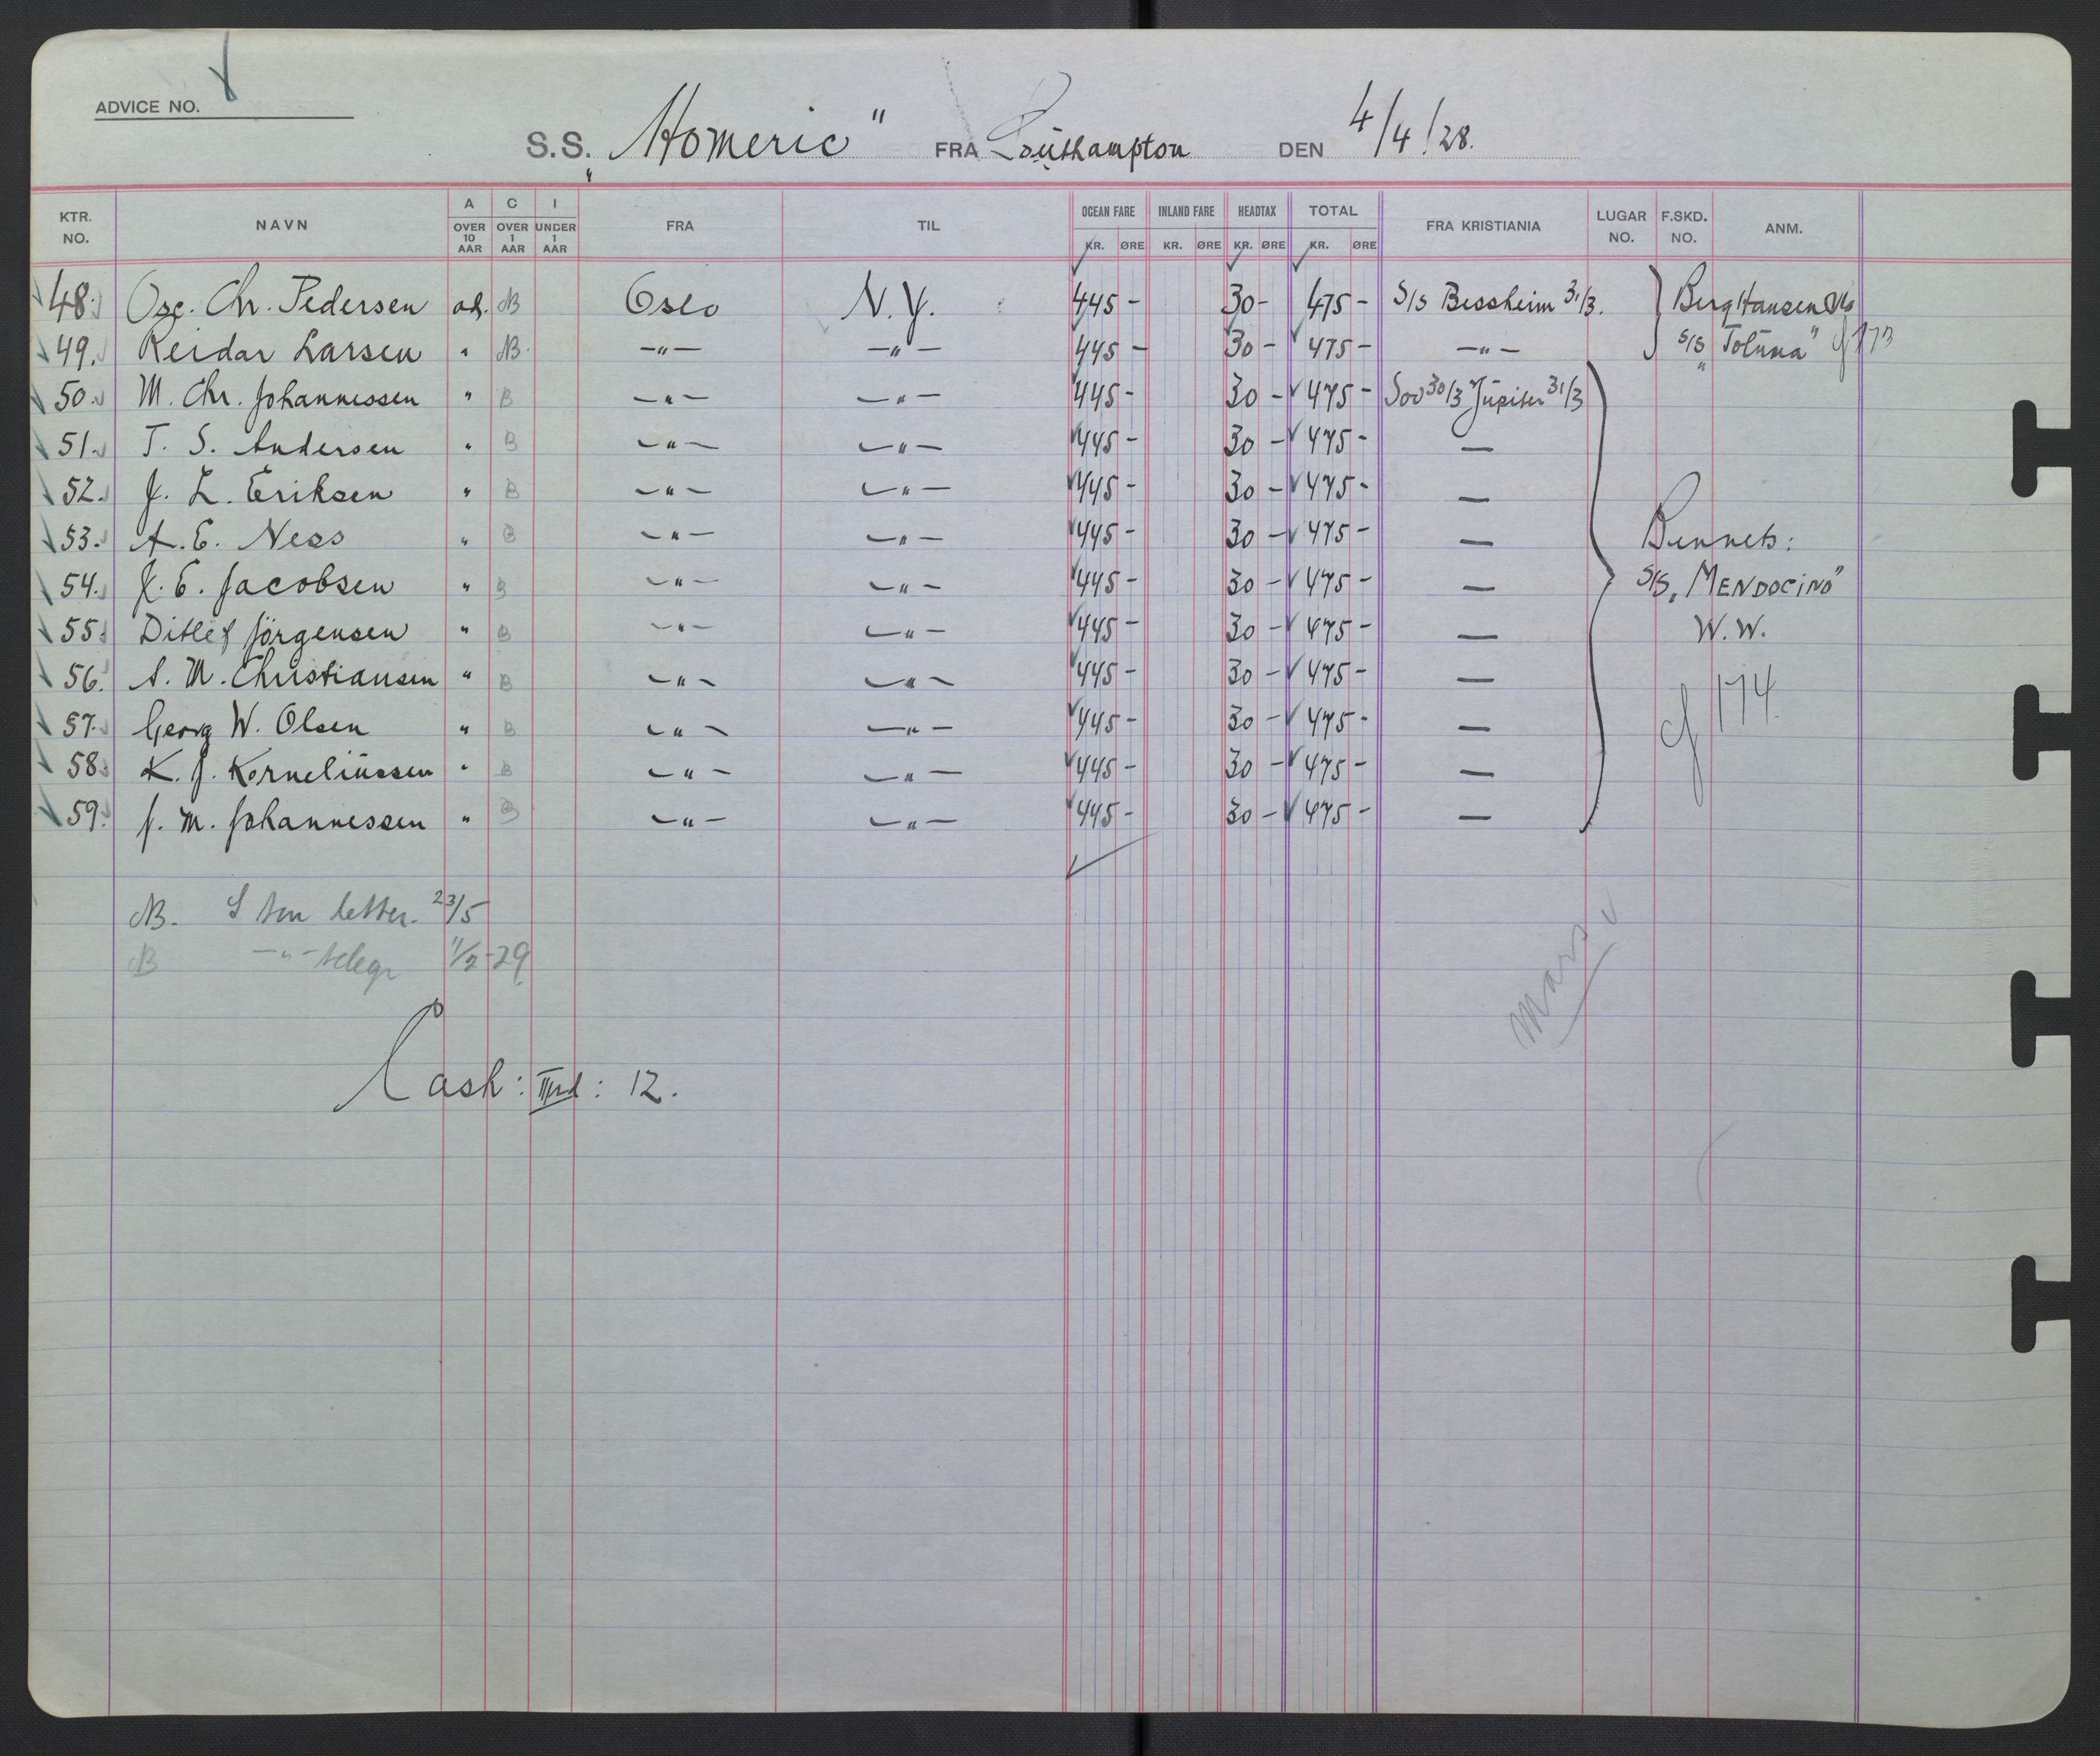 ADVICE NO.
S.S. „Homeric" FRA Southampton DEN 4/4/28.
KTR. NO. NAVN A OVER 10 AAR C OVER 1 AAR I UNDER 1 AAR FRA TIL OCEAN FARE KR. ØRE INLAND FARE KR. ØRE HEADTAX KR. ØRE TOTAL KR. ØRE FRA KRISTIANIA LUGAR NO. F.SKD. NO. ANM.
48. Osc. Chr. Pedersen ad. NB Oslo N.Y. 445 - 30 - 475 - S/S Bessheim 31/3. Berg Hansen Oslo
49. Reidar Larsen " NB. -"- -"- 445 - 30 - 475 - -"- S/S „Toluma" cf 173
50. M. Chr. Johannessen " B -"- -"- 445 - 30 - 475 - Sov 30/3 Jupiter 31/3
51. T. S. Andersen " B -"- -"- 445 - 30 - 475 - —
52. J. L. Eriksen " B -"- -"- 445 - 30 - 475 - —
53. A. E. Ness " B -"- -"- 445 - 30 - 475 - — Bennets:
54. J. E. Jacobsen " B -"- -"- 445 - 30 - 475 - — S/S „MENDOCINO"
55. Ditlef Jörgensen " B -"- -"- 445 - 30 - 475 - — W.W.
56. A. M. Christiansen " B -"- -"- 445 - 30 - 475 - — cf 174.
57. Georg W. Olsen " B -"- -"- 445 - 30 - 475 - —
58. K. J. Korneliussen " B -"- -"- 445 - 30 - 475 - —
59. J. M. Johannessen " B -"- -"- 445 - 30 - 475 - —
NB. letter. 23/5
B -"- telegr 11/2-29
Mars
Cash: IIIrd: 12.